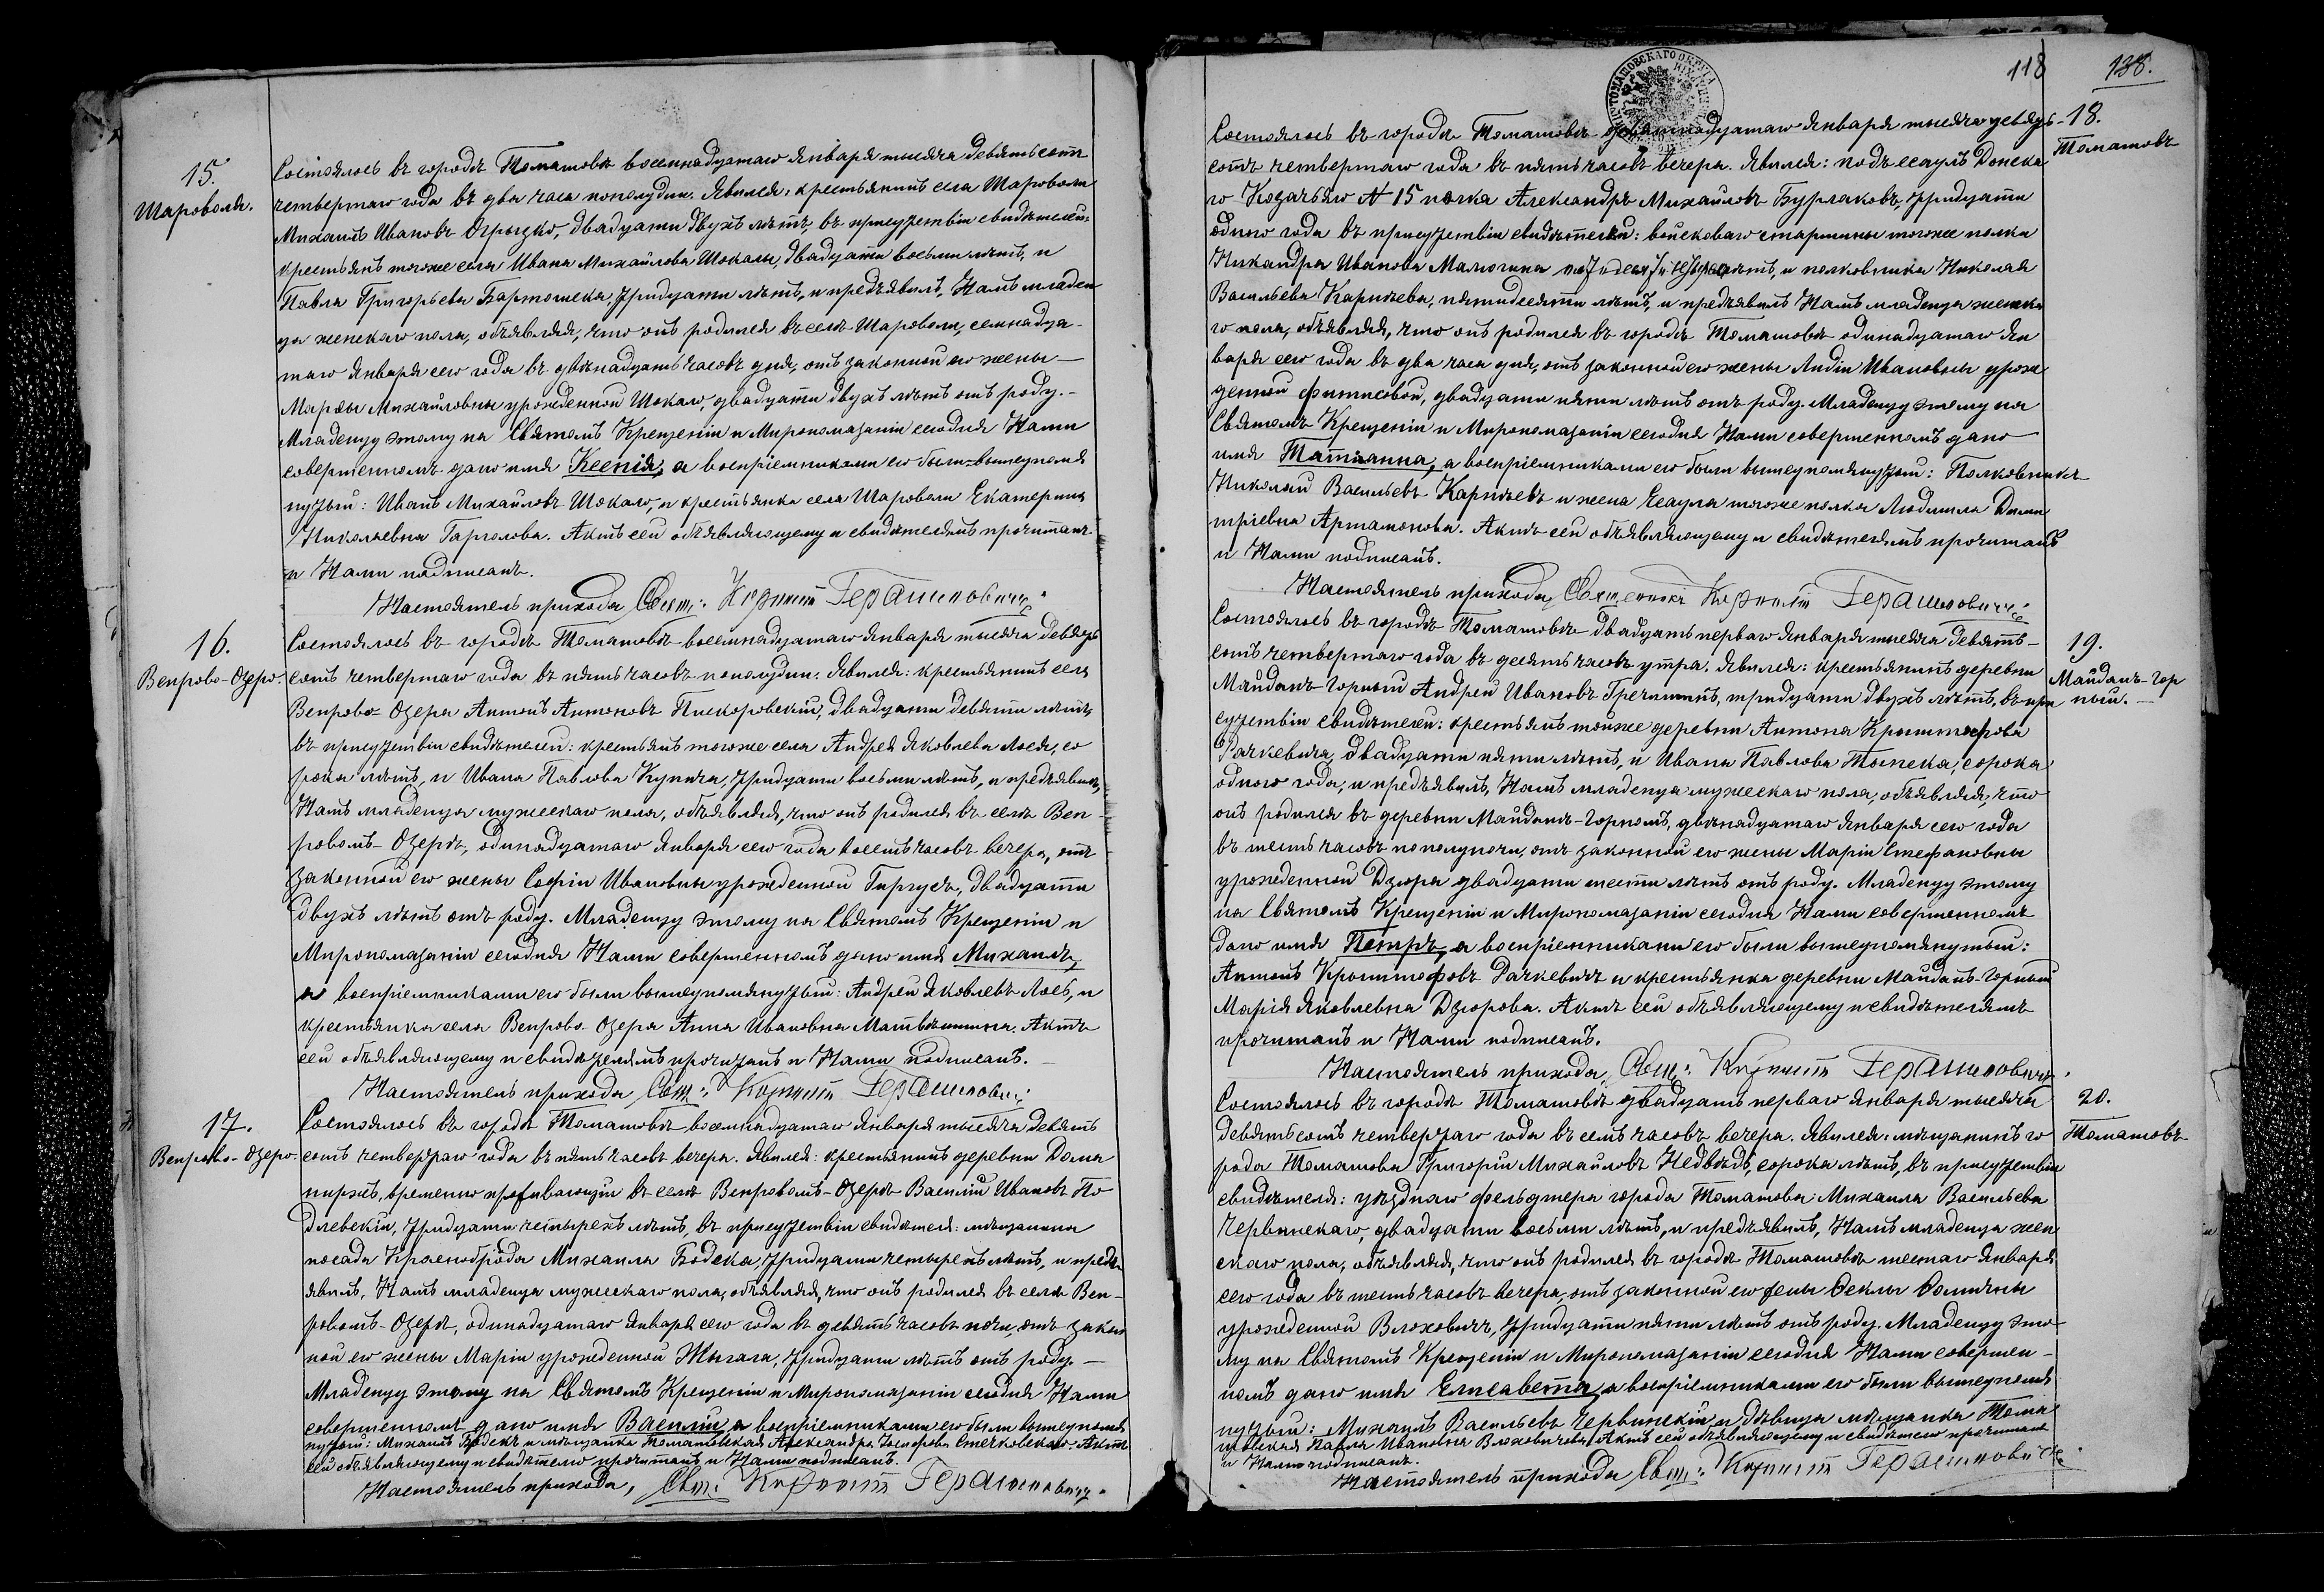 15.
Шароволя.
Состоялось въ городѣ Томашовѣ восемнадцатаго Января тысяча девятьсотъ
четвертаго года въ два часа пополудни. Явился: крестьянинъ села Шароволи
Михаилъ Ивановъ Огрызко, двадцати двухъ лѣтъ, въ присутствіи свидѣтелей:
крестьянъ тогоже села Ивана Михайлова Шокалы, двадцати восьми лѣтъ, и
Павла Григорьева Бартошека, тридцати лѣтъ, и предъявилъ, Намъ младен
ца женскаго пола, объявляя, что онъ родился въ селѣ Шароволи, семнадца-
таго Января сего года въ двѣнадцать часовъ дня, отъ законной его жены
Марѳы Михайловны урожденной Шокало, двадцати двухъ лѣтъ отъ роду.-
Младенцу этому на Святомъ Крещеніи и Миропомазаніи сегодня Нами
совершенномъ дано имя Ксенія, а воспріемниками его были вышеупомя
нутый: Иванъ Михайловъ Шокало, и крестьянка села Шароволи Екатерина
Николаевна Гарголова. Актъ сей объявляющему и свидѣтелямъ прочитанъ
и Нами подписанъ.
Настоятель прихода, Свящ: Герасимовичъ.
16.
Венрово-Озеро.
Состоялось въ городѣ Томашовѣ восемнадцатаго Января тысяча девять
сотъ четвертаго года въ пять часовъ пополудни. Явился: крестьянинъ села
Венрово-Озера Антонъ Антоновъ Пискоровскій, двадцати девяти лѣтъ,
въ присутствіи свидѣтелей: крестьянъ тогоже села Андрея Яковлева Лося, со
рока лѣтъ, и Ивана Павлова Кунича, тридцати восьми лѣтъ, и предъявилъ,
Намъ младенца мужескаго пола, объявляя, что онъ родился въ селѣ Вен-
ровомъ-Озерѣ, одинадцатаго Января сего года восемь часовъ вечера, отъ
законной его жены Софіи Ивановны урожденной Гиргусь, двадцати
двухъ лѣтъ отъ роду. Младенцу этому на Святомъ Крещеніи и
Миропомазаніи сегодня Нами совершенномъ дано имя Михаилъ,
а воспріемниками его были вышеупомянутый: Андрей Яковлевъ Лось, и
крестьянка села Венрово-Озера Анна Ивановна Матвѣишина. Актъ
сей объявляющему и свидѣтелямъ прочитанъ и Нами подписанъ.
Настоятель прихода, Свящ: Герасимовичъ
17.
Венрово-Озеро.
Состоялось въ городѣ Томашовѣ восемнадцатаго Января тысяча девять
сотъ четвертаго года въ пять часовъ вечера. Явился: крестьянинъ деревни Дома
нижъ, временно проживающій въ селѣ Венровомъ-Озерѣ Василій Ивановъ По
длевскій, тридцати четырехъ лѣтъ, въ присутствіи свидѣтеля: мѣщанина
посада Красноброда Михаила Бодека, тридцати четырехъ лѣтъ, и предъ
явилъ, Намъ младенца мужескаго пола, объявляя, что онъ родился въ селѣ Вен-
ровомъ-Озерѣ, одинадцатаго Января сего года въ девять часовъ ночи, отъ закон
ной его жены Маріи урожденной Жигала, тридцати лѣтъ отъ роду.-
Младенцу этому на Святомъ Крещеніи и Миропомазаніи сегодня Нами
совершенномъ дано имя Василій, а воспріемниками его были вышеупомя
нутый: Михаилъ Бодекъ и мѣщанка Томашовская Александра Іосифова Стечковская. Актъ
сей объявляющему и свидѣтелю прочитанъ и Нами подписанъ.
Настоятель прихода, Свящ: Герасимовичъ.
118
138.
18.
Томашовъ
Состоялось въ городѣ Томашовѣ девятнадцатаго Января тысяча девять-
сотъ четвертаго года въ пять часовъ вечера. Явился: подъесаулъ Донска
го Козачьяго N 15 полка Александръ Михайловъ Бурлаковъ, тридцати
одного года въ присутствіи свидѣтелей: войсковаго старшины тогоже полка
Никандра Иванова Малюгина лѣтъ, и полковника Николая
Васильева Карпѣева, пятидесяти лѣтъ, и предъявилъ Намъ младенца женска
го пола, объявляя, что онъ родился въ городѣ Томашовѣ одинадцатаго Ян
варя сего года въ два часа дня, отъ законной его жены Лидіи Ивановны урож
денной Фитисовой, двадцати пяти лѣтъ отъ роду. Младенцу этому на
Святомъ Крещеніи и Миропомазаніи сегодня Нами совершенномъ дано
имя Татіанна, а воспріемниками его были вышеупомянутый: Полковникъ
Николай Васильевъ Карпѣевъ и жена Есаула тогоже полка Людмила Дими
тріевна Артамонова. Актъ сей объявляющему и свидѣтелямъ прочитанъ
и Нами подписанъ.
Настоятель прихода, Священникъ Герасимовичъ
19.
Майданъ-Гор
ный.-
Состоялось въ городѣ Томашовѣ двадцать перваго Января тысяча девять-
сотъ четвертаго года въ десять часовъ утра. Явился: крестьянинъ деревни
Майданъ-Горный Андрей Ивановъ Гречинъ, тридцати двухъ лѣтъ, въ при
сутствіи свидѣтелей: крестьянъ тойже деревни Антона Крыштофова
Рачкевича, двадцати пяти лѣтъ, и Ивана Павлова Томека, сорока
одного года, и предъявилъ, Намъ младенца мужескаго пола, объявляя, что
онъ родился въ деревни Майданъ-Горномъ, двѣнадцатаго Января сего года
въ шесть часовъ пополуночи, отъ законной его жены Маріи Стефановны
урожденной Дзюра двадцати шести лѣтъ отъ роду. Младенцу этому
на Святомъ Крещеніи и Миропомазаніи сегодня Нами совершенномъ
дано имя Петръ, а воспріемниками его были вышеупомянутый:
Антонъ Крыштофовъ Рачкевичъ и крестьянка деревни Майданъ-Горный
Марія Яковлевна Дзюрова. Актъ сей объявляющему и свидѣтелямъ
прочитанъ и Нами подписанъ.
Настоятель прихода, Свящ: Герасимовичъ.
20.
Томашовъ
Состоялось въ городѣ Томашовѣ двадцать перваго Января тысяча
девятьсотъ четвертаго года въ семь часовъ вечера. Явился: мѣщанинъ го
рода Томашова Григорій Михайловъ Недвѣдь, сорока лѣтъ, въ присутствіи
свидѣтеля: уѣзднаго фельдшера города Томашова Михаила Васильева
Червинскаго, двадцати восьми лѣтъ, и предъявилъ, Намъ младенца жен
скаго пола, объявляя, что онъ родился въ городѣ Томашовѣ шестаго Января
сего года въ шесть часовъ вечера, отъ законной его жены Ѳеклы Ѳоминны
урожденной Влоховичъ, тридцати пяти лѣтъ отъ роду. Младенцу это-
му на Святомъ Крещеніи и Миропомазаніи сегодня Нами совершен-
номъ дано имя Елисавета, а воспріемниками его были вышеупомя
нутый: Михаилъ Васильевъ Червинскій и дѣвица мѣщанка Тома
шовская Ивановна Влоховичова. Актъ сей объявляющему и свидѣтелю прочитанъ
и Нами подписанъ.
Настоятель прихода, Свящ: Герасимовичъ.